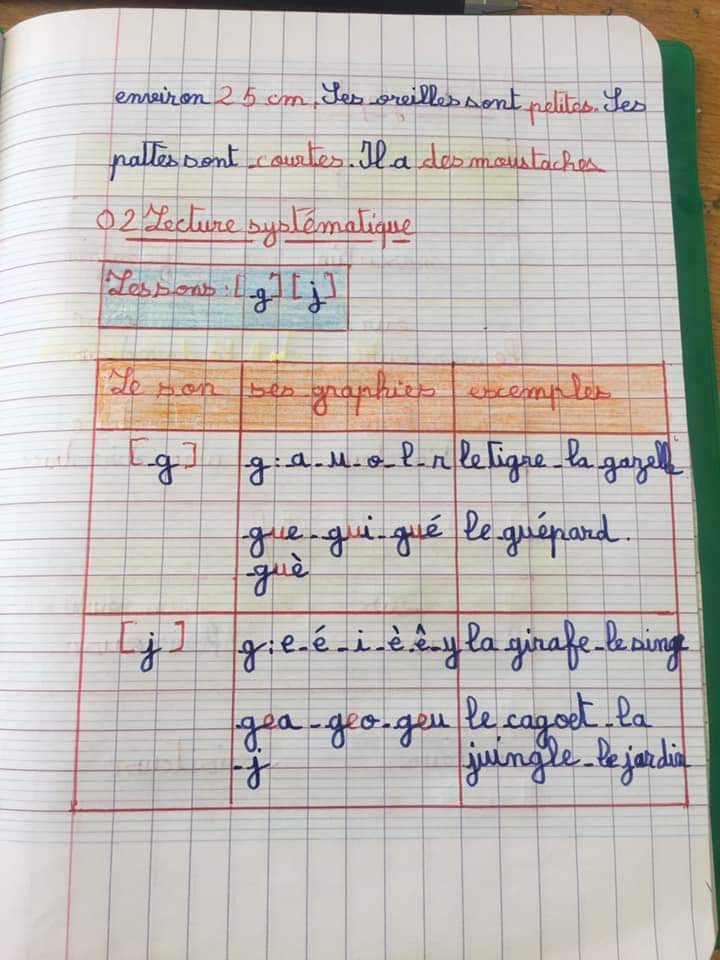 environ 25 cm. Ses oreilles sont petites. Ses
pattes sont courtes. Il a des moustaches
02 Lecture systématique
Les sons : [g] [j]
Le son ses graphies exemples
[g] g : a - u - o - l - r le tigre - la gazelle
gue - gui - gué le guépard.
guè
[j] g : e - é - i - è - ê - y la girafe - le singe
gea - geo - geu le cageot - la
- j juingle - le jardin